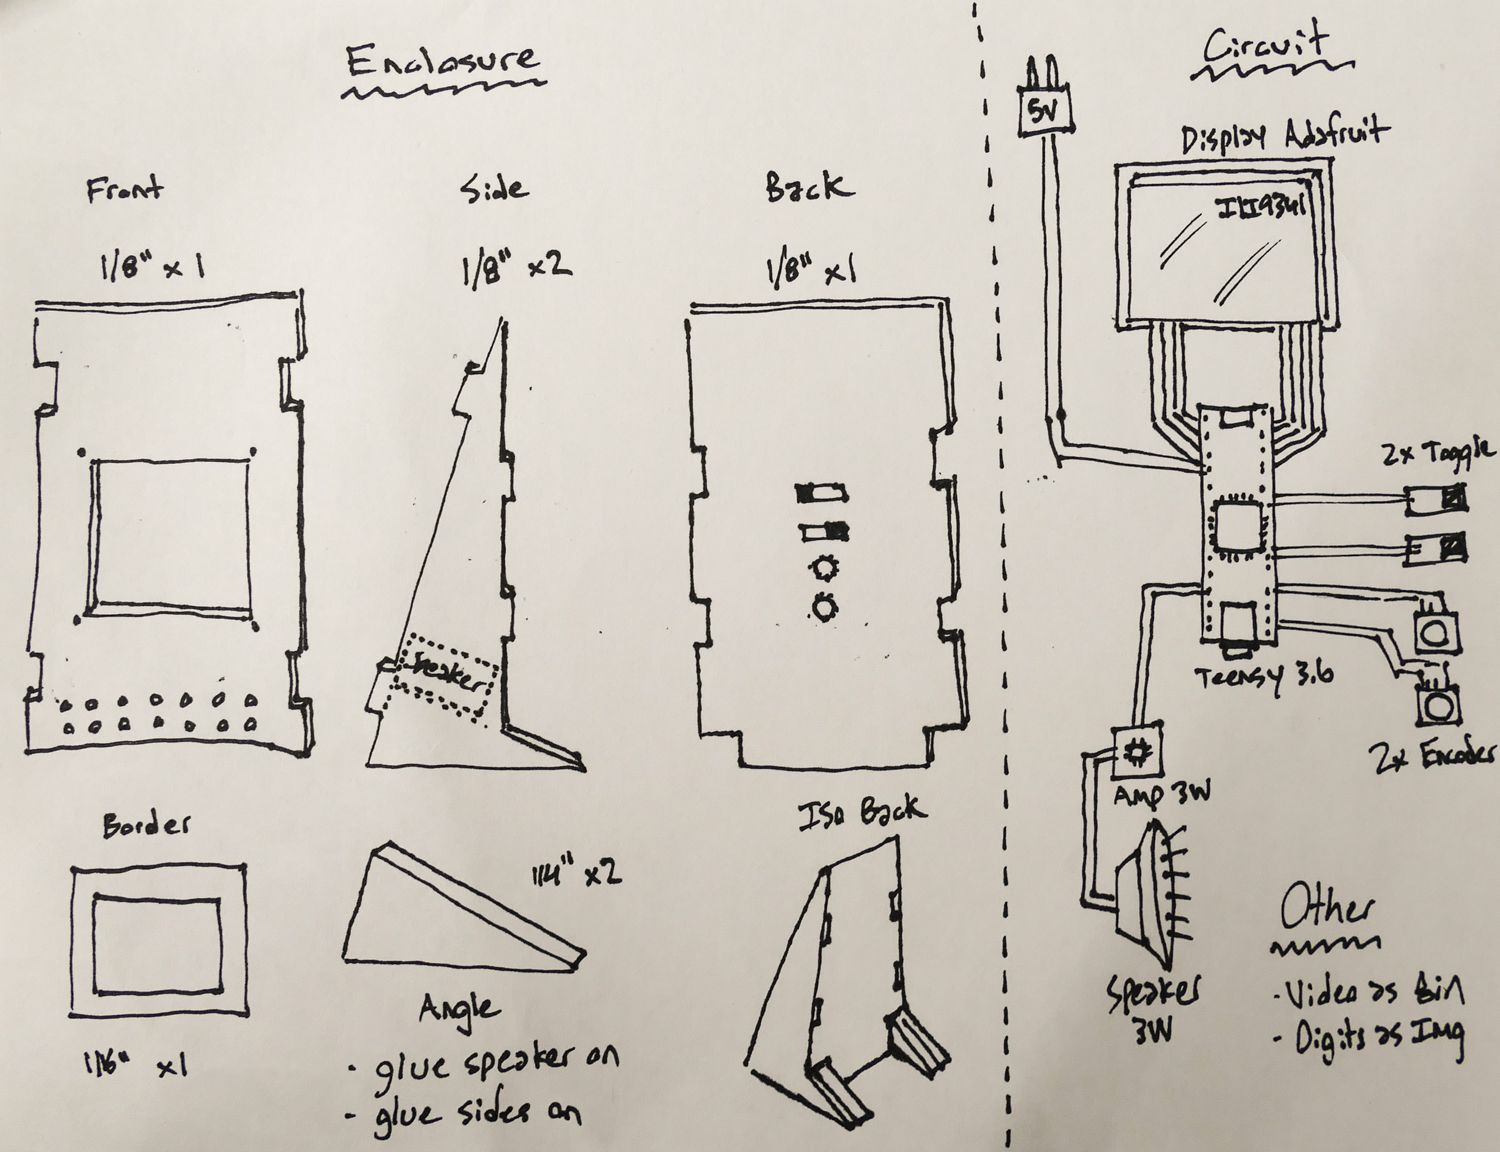 Enclosure
Front
1/8" x 1
Side
1/8" x2
Back
1/8" x1
Speaker
Border
1/16" x1
1/4" x2
Angle
- glue speaker on
- glue sides on
Iso Back
Circuit
5V
Display Adafruit
ILI9341
2x Toggle
Teensy 3.6
2x Encoder
Amp 3W
Speaker
3W
Other
- Video as Bin
- Digits as Img